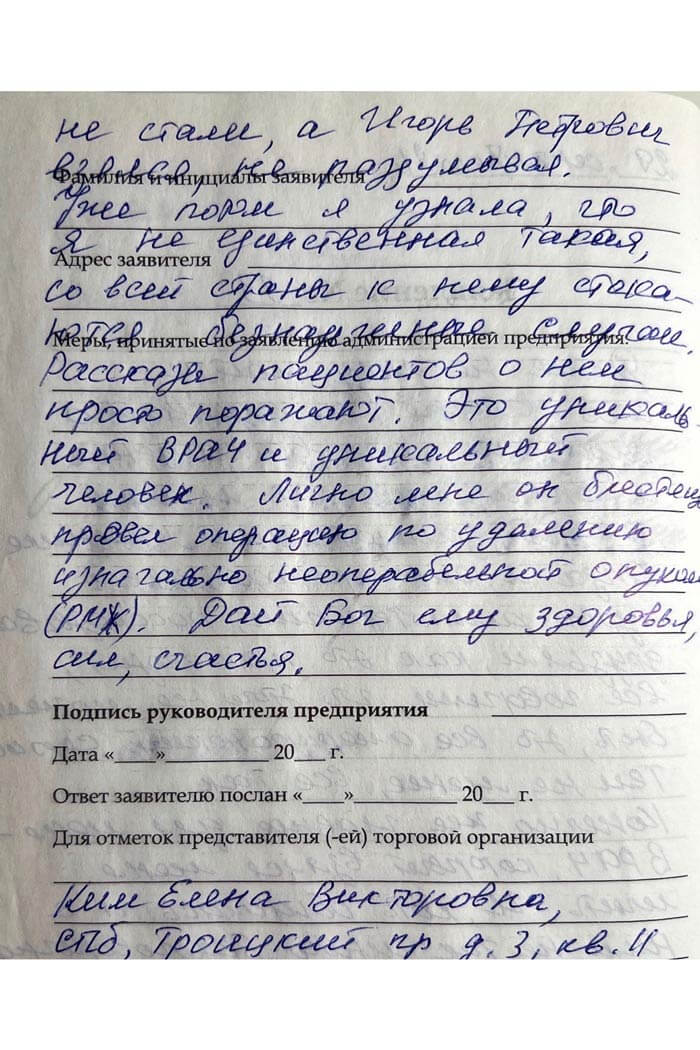 не стали, а Игорь Петрович
взялся, не раздумывая.
Фамилия и инициалы заявителя
Уже потом я узнала, что
я не единственная такая,
Адрес заявителя
со всей страны к нему стека-
ются безнадежные случаи.
Меры, принятые по заявлению администрацией предприятия:
Рассказы пациентов о нем
просто поражают. Это уникаль-
ный врач и уникальный
человек. Лично мне он блестящ
провел операцию по удалению
изначально неоперабельной опухол
(РМЖ). Дай Бог ему здоровья,
сил, счастья.
Подпись руководителя предприятия
Дата «___»__________ 20___ г.
Ответ заявителю послан «___»__________ 20___ г.
Для отметок представителя (-ей) торговой организации
Ким Елена Викторовна,
СПб, Троицкий пр д. 3, кв. 11